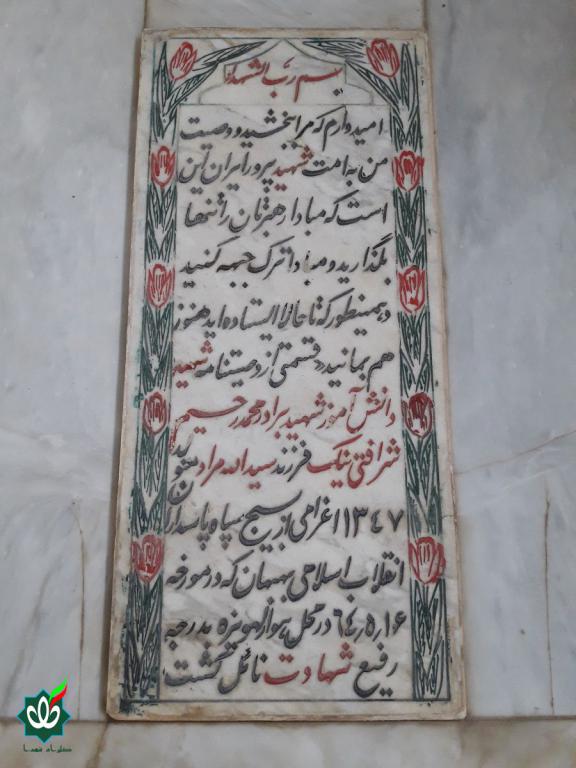 بسم رب الشهداء
امیدوارم که مرا ببخشید و وصیت
من به امت شهید پرور ایران این
است که مبادا رهبرتان را تنها
بگذارید و مبادا ترک جبهه کنید
و همینطور که تا حالا ایستاده اید هنوز
هم بمانید، قسمتی از وصیتنامه شهید
دانش آموز شهید برادر محمد رحیم
شرافتی نیک فرزند سید الله مراد متولد
۱۳۴۷ اعزامی از بسیج سپاه پاسداران
انقلاب اسلامی بهبهان که در مورخه
۶۴٫۵٫۱۶ در محل هورالهویزه بدرجه
رفیع شهادت نائل گشت